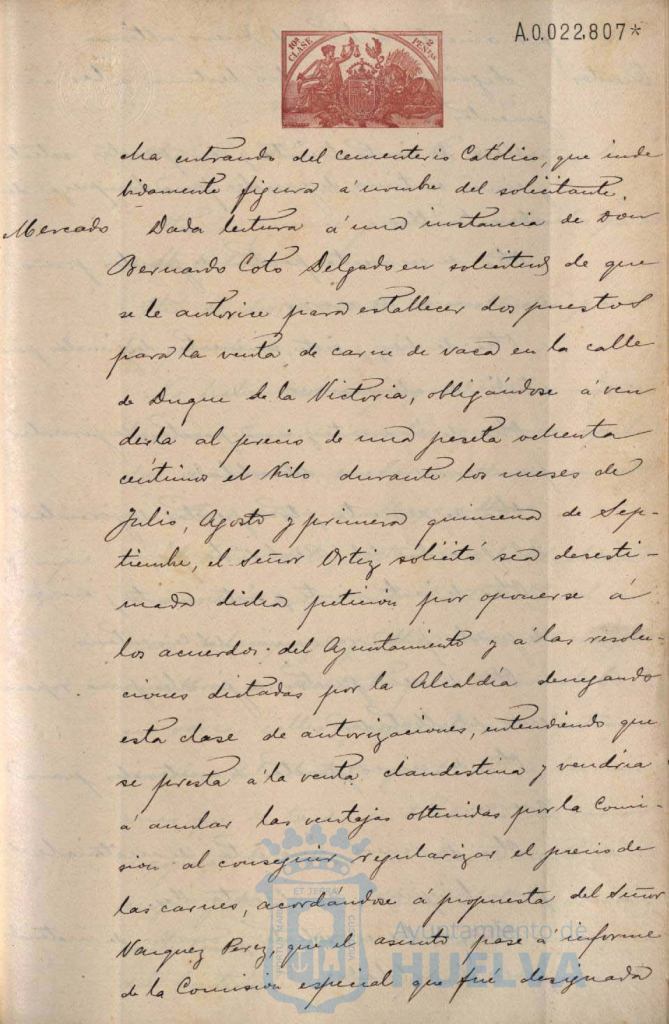 A.0.022,807*
10ª CLASE 2 PESETAS
cha entrando del cementerio Católico, que inde
bidamente figura á nombre del solicitante.
Mercado Dada lectura á una instancia de Don
Bernardo Coto Delgado en solicitud de que
se le autorice para establecer dos puestos
para la venta de carne de vaca en la calle
de Duque de la Victoria, obligándose á ven
derla al precio de una peseta ochenta
céntimos el Kilo durante los meses de
Julio, Agosto y primera quincena de Sep-
tiembre, el Señor Ortiz solicitó sea desesti-
mada dicha petición por oponerse á
los acuerdos del Ayuntamiento y á las resolu-
ciones dictadas por la Alcaldía denegando
esta clase de autorizaciones, entendiendo que
se presta á la venta clandestina y vendria
á anular las ventajas obtenidas por la Comi-
sion al conseguir regularizar el precio de
las carnes, acordándose á propuesta del Señor
Vazquez Perez, que el asunto pase á informe
de la Comision especial que fué designada
Ayuntamiento de
HUELVA